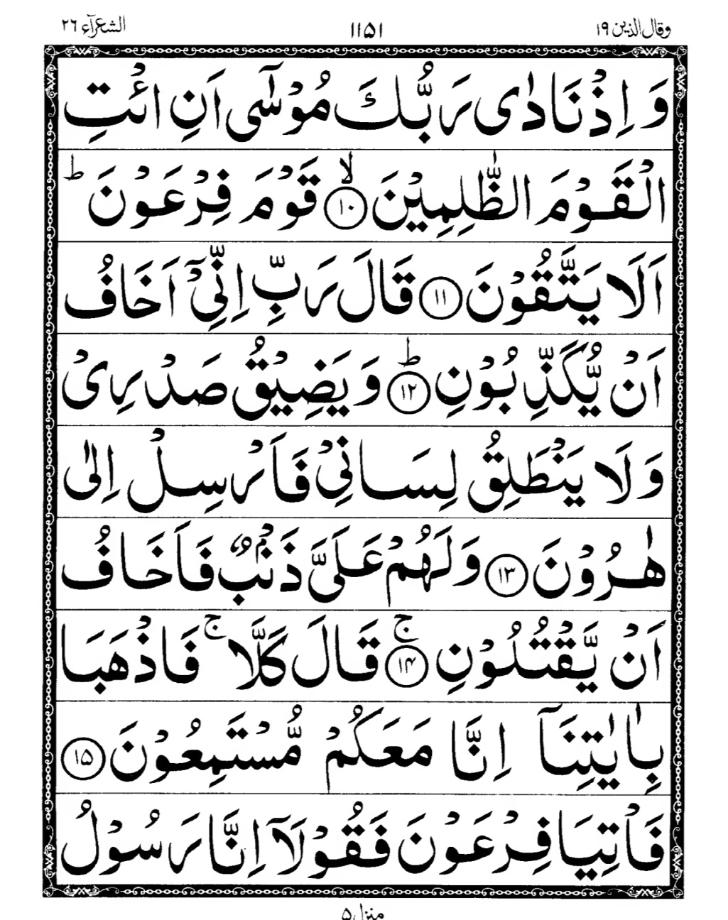 وقال الذین ١٩ ١١۵١ الشعرآء ٢٦
وَ اِذْ نَادٰى رَبُّكَ مُوْسٰۤى اَنِ ائْتِ
الْقَوْمَ الظّٰلِمِیْنَ ۙ﴿١٠﴾ قَوْمَ فِرْعَوْنَ ؕ
اَلَا یَتَّقُوْنَ ﴿١١﴾ قَالَ رَبِّ اِنِّیْۤ اَخَافُ
اَنْ یُّكَذِّبُوْنِ ؕ﴿١٢﴾ وَ یَضِیْقُ صَدْرِیْ
وَ لَا یَنْطَلِقُ لِسَانِیْ فَاَرْسِلْ اِلٰى
هٰرُوْنَ ﴿١٣﴾ وَ لَهُمْ عَلَیَّ ذَنْۢبٌ فَاَخَافُ
اَنْ یَّقْتُلُوْنِ ۚ﴿١۴﴾ قَالَ كَلَّا ۚ فَاذْهَبَا
بِاٰیٰتِنَاۤ اِنَّا مَعَكُمْ مُّسْتَمِعُوْنَ ﴿١۵﴾
فَاْتِیَا فِرْعَوْنَ فَقُوْلَاۤ اِنَّا رَسُوْلُ
منزل ۵